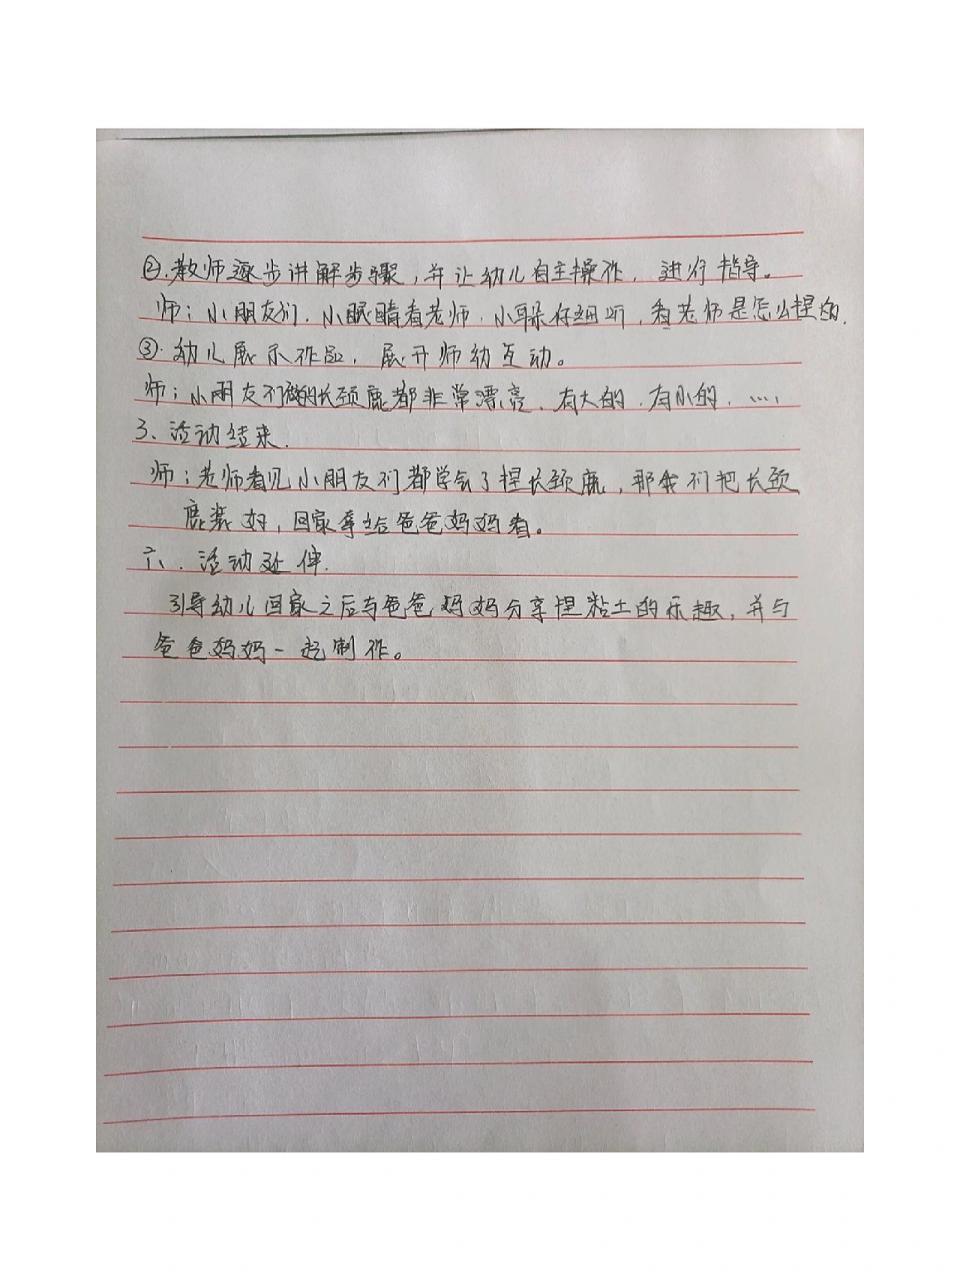 ②.教师逐步讲解步骤,并让幼儿自主操作,进行指导。
师:小朋友们,小眼睛看老师,小耳朵仔细听,看老师是怎么捏的.
③.幼儿展示作品,展开师幼互动。
师:小朋友们做的长颈鹿都非常漂亮,有大的,有小的,....
3、活动结束.
师:老师看见小朋友们都学会了捏长颈鹿,那我们把长颈
鹿装好,回家拿给爸爸妈妈看。
六、活动延伸.
引导幼儿回家之后与爸爸妈妈分享捏粘土的乐趣,并与
爸爸妈妈一起制作。